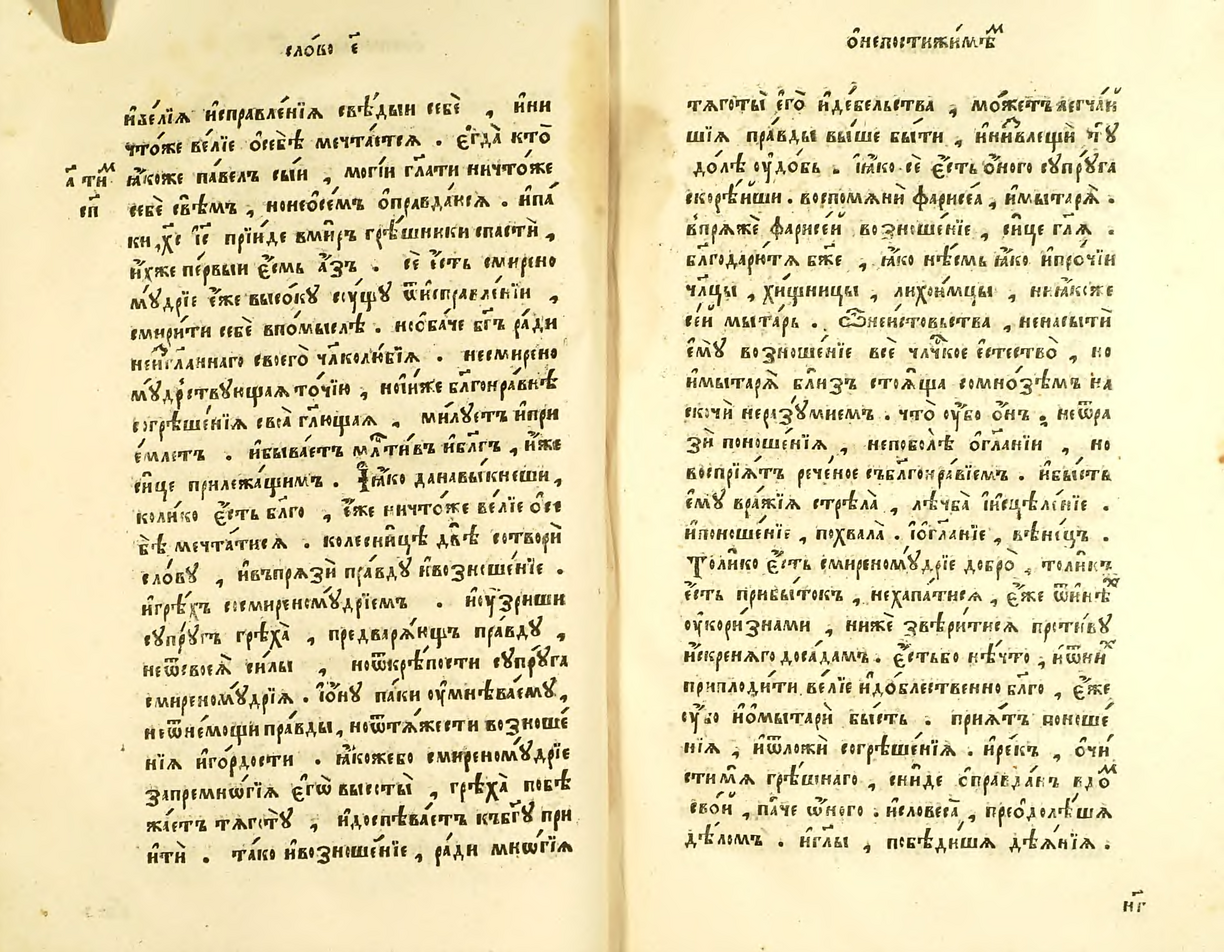 сло́во є҃
и҆ве́лїѧ и҆справле́нїѧ свѣ́дыи себѐ , и҆ни
что́же ве́лїе ѡ҆себѣ̀ мечта́етсѧ . є҆гда̀ кто̀
а҃ тиⷨ
ꙗ҆́коже па́велъ сы́и , моги́и гл҃ати ничто́же
сп҃
себѐ свѣ́мъ , нонеѡ҆се́мъ ѡ҆правда́ихсѧ . и҆па́
ки , хс҃ і҆с҃ прїи́де вми́ръ грѣ́шники спастѝ ,
и҆́хже пе́рвыи є҆́смь а҆́зъ . се́ є҆сть смирено
мꙋ́дрїе є҆́же высо́кꙋ сꙋ́щꙋ ѿи҆справле́нїи ,
смири́ти себѐ впо́мыслѣ . но ѻ҆ба́че бг҃ъ ра́ди
неи҆згл҃аннаго своего̀ чл҃колю́бїѧ . несмирено
мꙋ́дрствꙋющаѧ то́чїю , нои҆и́же бл҃гонра́внѣ
согрѣше́нїѧ своѧ̀ гл҃ющаѧ , ми́лꙋетъ и҆при
е́млетъ . и҆быва́етъ млⷭ҇тивъ и҆бл҃гъ , и҆́же
си́це прилежа́щимъ . Ꙗ҆́ко данавы́кнеши ,
коли́ко є҆́сть бл҃го , є҆́же ничто́же ве́лїе ѡ҆се
бѣ̀ мечта́тисѧ . колесни́цѣ двѣ̀ сотворѝ
сло́вꙋ , и҆въпрѧзѝ пра́вдꙋ и҆возноше́нїе .
и҆грѣ́хъ сосмиреномꙋ́дрїемъ . и҆оу҆́зриши
сꙋпрꙋ́гъ грѣха̀ , предварѧ́ющъ пра́вдꙋ ,
неѿсвоеѧ̀ си́лы , ноѿкрѣ́пости сꙋпрꙋ́га
смиреномꙋ́дрїѧ . і҆ѻ҆́нꙋ па́ки оу҆мнѣва́емꙋ ,
неѿне́мощи пра́вды , ноѿтѧ́жести возноше́
нїѧ и҆го́рдости . ꙗ҆́кожебо смиреномꙋ́дрїе
запремнѡ́гїѧ є҆гѡ̀ высоты̀ , грѣха̀ побѣ
жа́етъ тѧготꙋ̀ , и҆доспѣва́етъ къбг҃ꙋ при
и҆тѝ . та́ко и҆возноше́нїе , ра́ди мнѡ́гїѧ
ѻ҆непостижи́мѣⷨ
тѧготы̀ є҆го̀ и҆дебе́льства , мо́жетъ легча́и
шїѧ пра́вды вы́ше бы́ти , и҆ни́влещи ю҆̀
до́лѣ оу҆до́бь . і҆ꙗ҆́ко се́ є҆сть ѻ҆́ного сꙋпрꙋ́га
скорѣ́йши . воспомѧнѝ фарисе́а , и҆мытарѧ̀ .
впрѧжѐ фарисе́й возноше́нїе , си́це гл҃ѧ .
бл҃годарю́тѧ бж҃е , ꙗ҆́ко нѣ́смь ꙗ҆́ко и҆про́чїи
чл҃цы , хи́щницы , лихои́мцы , ниꙗ҆́коже
се́и мыта́рь . Ѽнеи́стовьства , ненасыти
є҆мꙋ̀ возноше́нїе всѐ чл҃чкое є҆стество̀ , но
и҆мытарѧ̀ бли́зъ стоѧ́ща сомно́зѣмъ на
скочѝ неразꙋ́миемъ . что̀ оу҆́бо ѻ҆́нъ . неѿра
зѝ поноше́нїѧ , непоболѣ̀ ѡ҆гл҃а́нїи , но
воспрїѧ́тъ рече́ное събл҃гонра́вїемъ . и҆бы́сть
є҆мꙋ̀ вра́жїѧ стрѣла̀ , лѣ́чба и҆исцѣле́нїе .
и҆поноше́нїе , похвала̀ . і҆ѻ҆гл҃а́нїе , вѣне́цъ .
Толи́ко є҆́сть смиреномꙋ́дрїе добро̀ , толи́къ
є҆́сть прибы́токъ , нехапа́тисѧ , є҆́же ѿи҆нѣⷯ
оу҆кори́знами , ниже звѣри́тисѧ проти́вꙋ
и҆́скренѧго доса́дамъ . є҆́стьбо нѣ́что , и҆ѿниⷯ
приплоди́ти ве́лїе и҆до́блественно бл҃го , є҆́же
оу҆́бо и҆ѡ҆мытарѝ бы́сть . прїѧ́тъ поноше́
нїѧ , и҆ѿложѝ согрѣше́нїѧ . и҆ре́къ , ѻ҆чи́
стимѧ̀ грѣ́шнаго , сни́де ѡ҆правда́нъ вдоⷨ
сво́й , па́че ѡ҆́ного . и҆словеса̀ , преѡ҆долѣ́шѧ
дѣ́ломъ . и҆гл҃ы , побѣди́шѧ дѣѧ́нїѧ .
нг҃